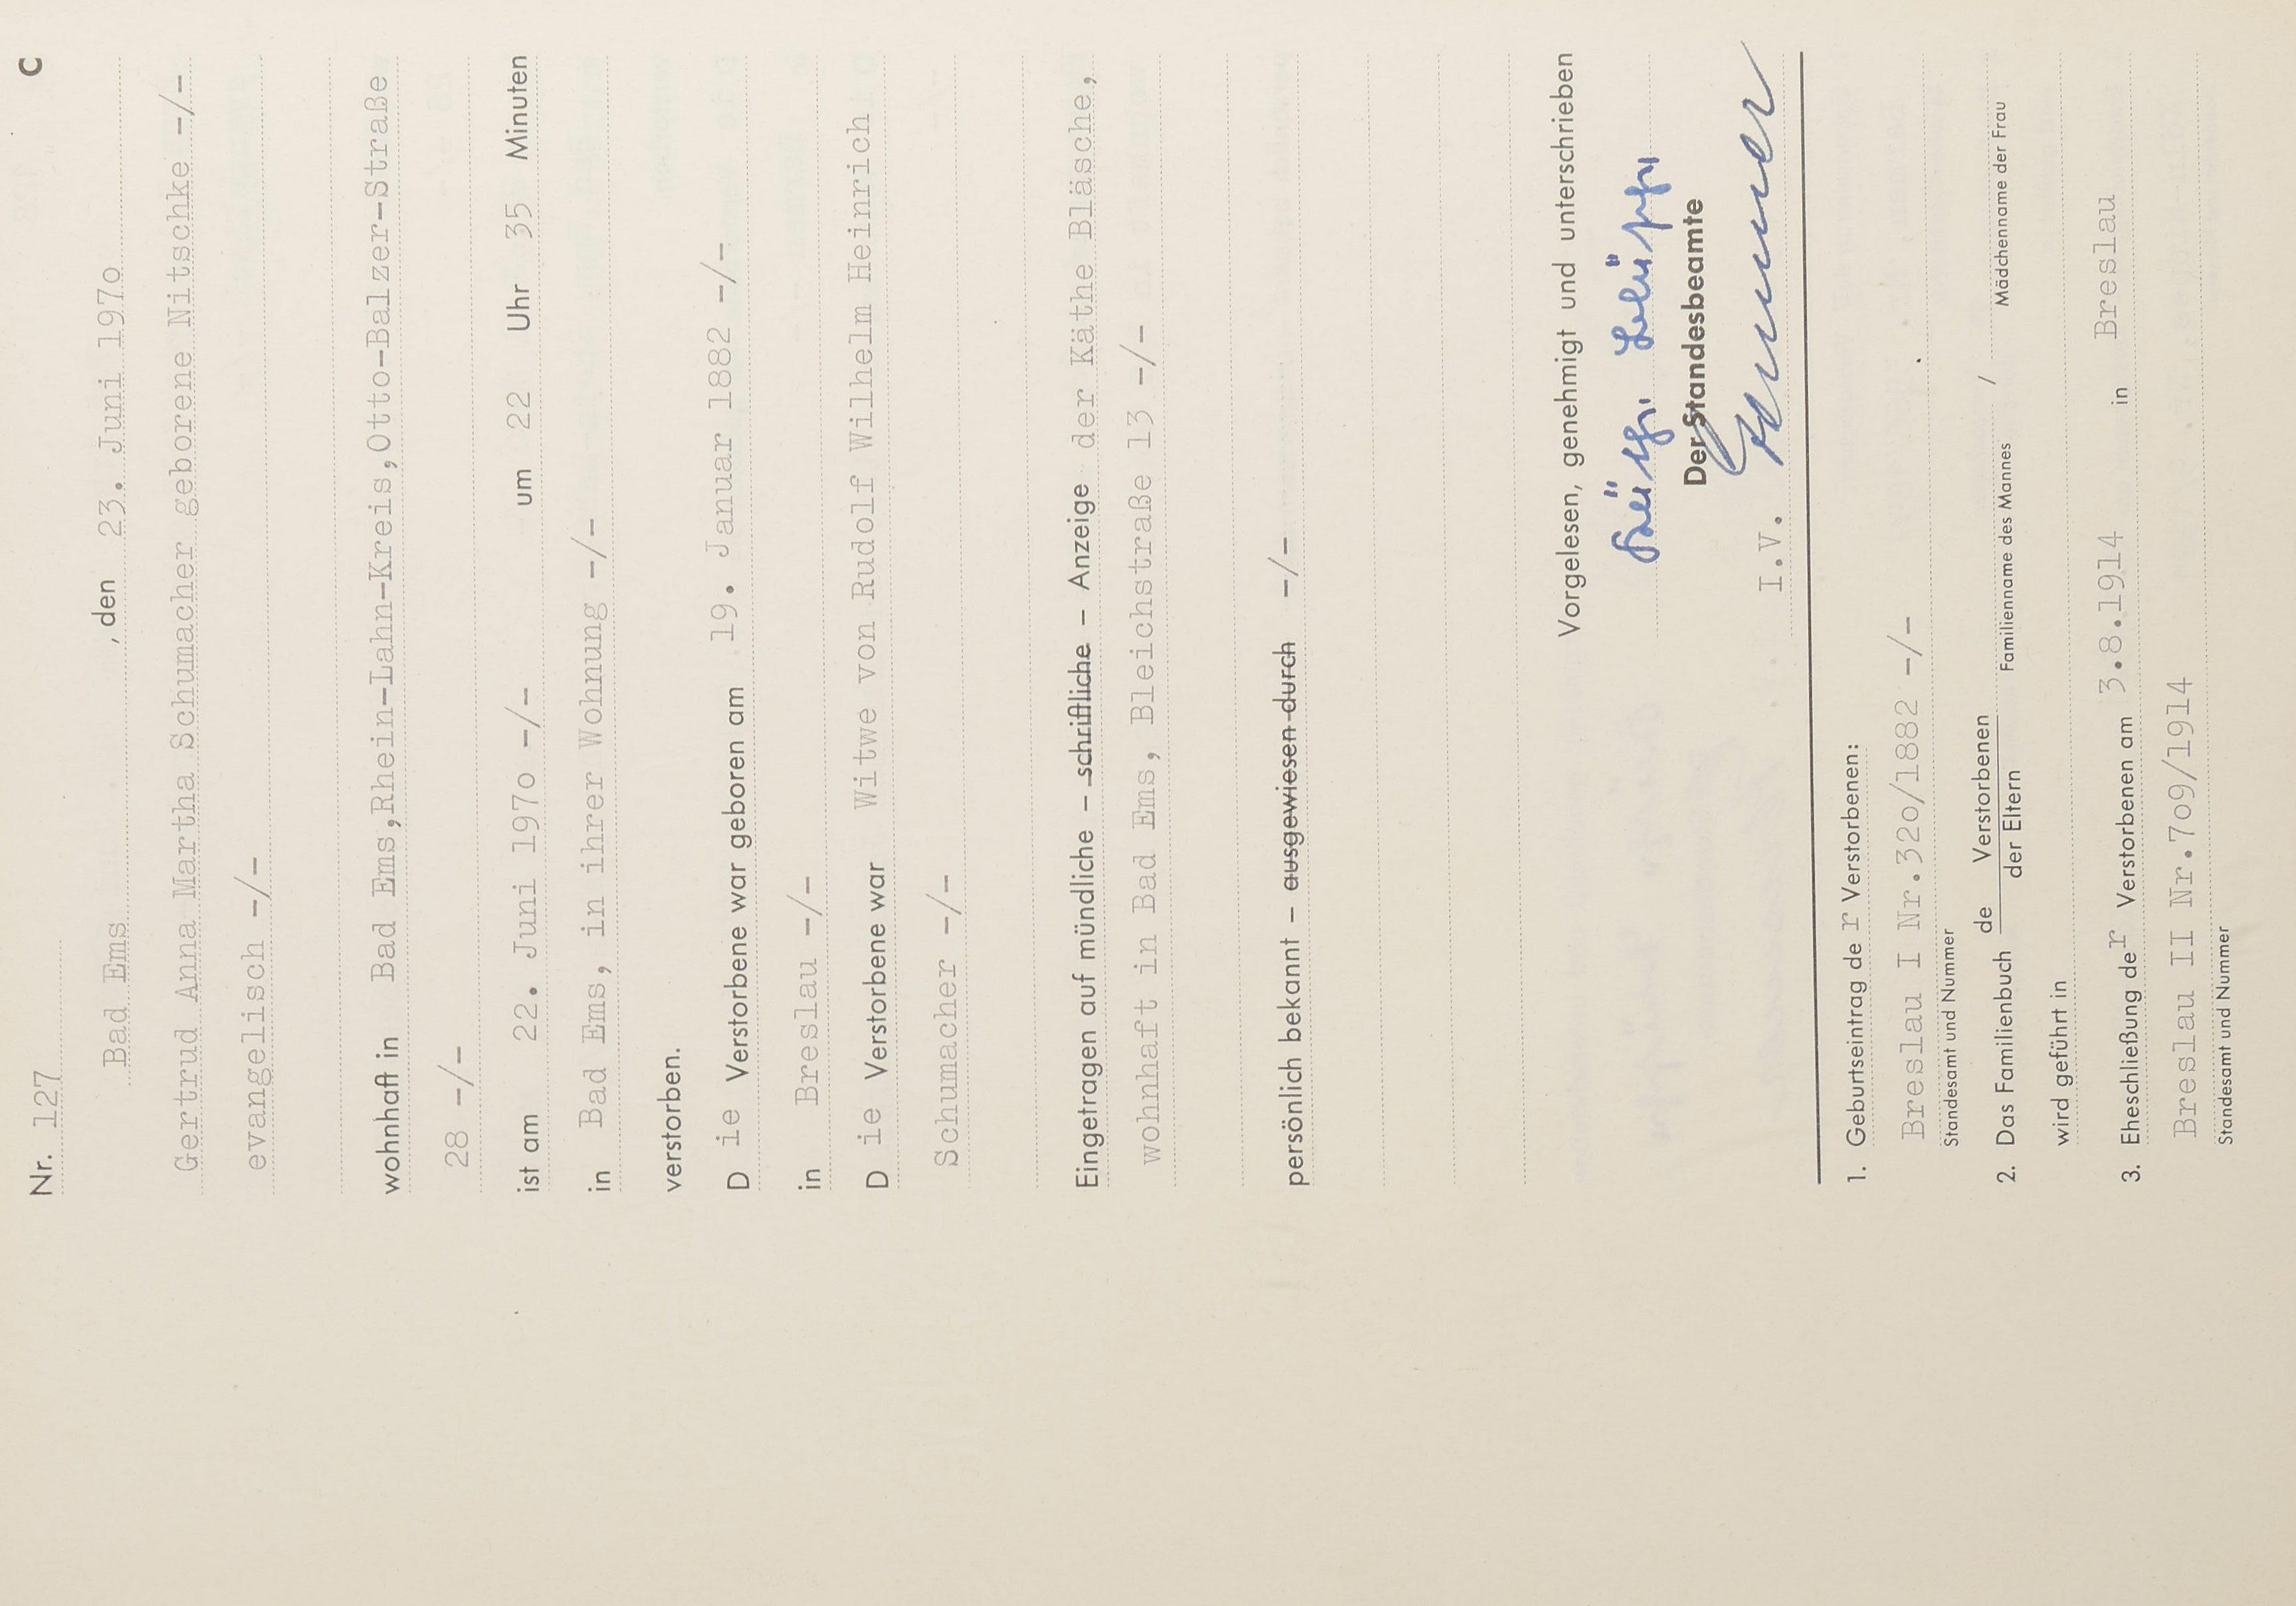 C
Nr. 127
Bad Ems , den 23. Juni 197o
Gertrud Anna Martha Schumacher geborene Nitschke -/-
evangelisch -/-
wohnhaft in Bad Ems,Rhein-Lahn-Kreis,Otto-Balzer-Straße
28 -/-
ist am 22. Juni 197o -/- um 22 Uhr 35 Minuten
in Bad Ems, in ihrer Wohnung -/-
verstorben.
D ie Verstorbene war geboren am 19. Januar 1882 -/-
in Breslau -/-
D ie Verstorbene war Witwe von Rudolf Wilhelm Heinrich
Schumacher -/-
Eingetragen auf mündliche – schriftliche – Anzeige der Käthe Bläsche,
wohnhaft in Bad Ems, Bleichstraße 13 -/-
persönlich bekannt – ausgewiesen durch -/-
Vorgelesen, genehmigt und unterschrieben
Käthe Bläsche
Der Standesbeamte
I.V.
1. Geburtseintrag de r Verstorbenen:
Breslau I Nr.32o/1882 -/-
Standesamt und Nummer
2. Das Familienbuch de Verstorbenen der Eltern /
Familienname des Mannes Mädchenname der Frau
wird geführt in
3. Eheschließung der Verstorbenen am 3.8.1914 in Breslau
Breslau II Nr.7o9/1914
Standesamt und Nummer